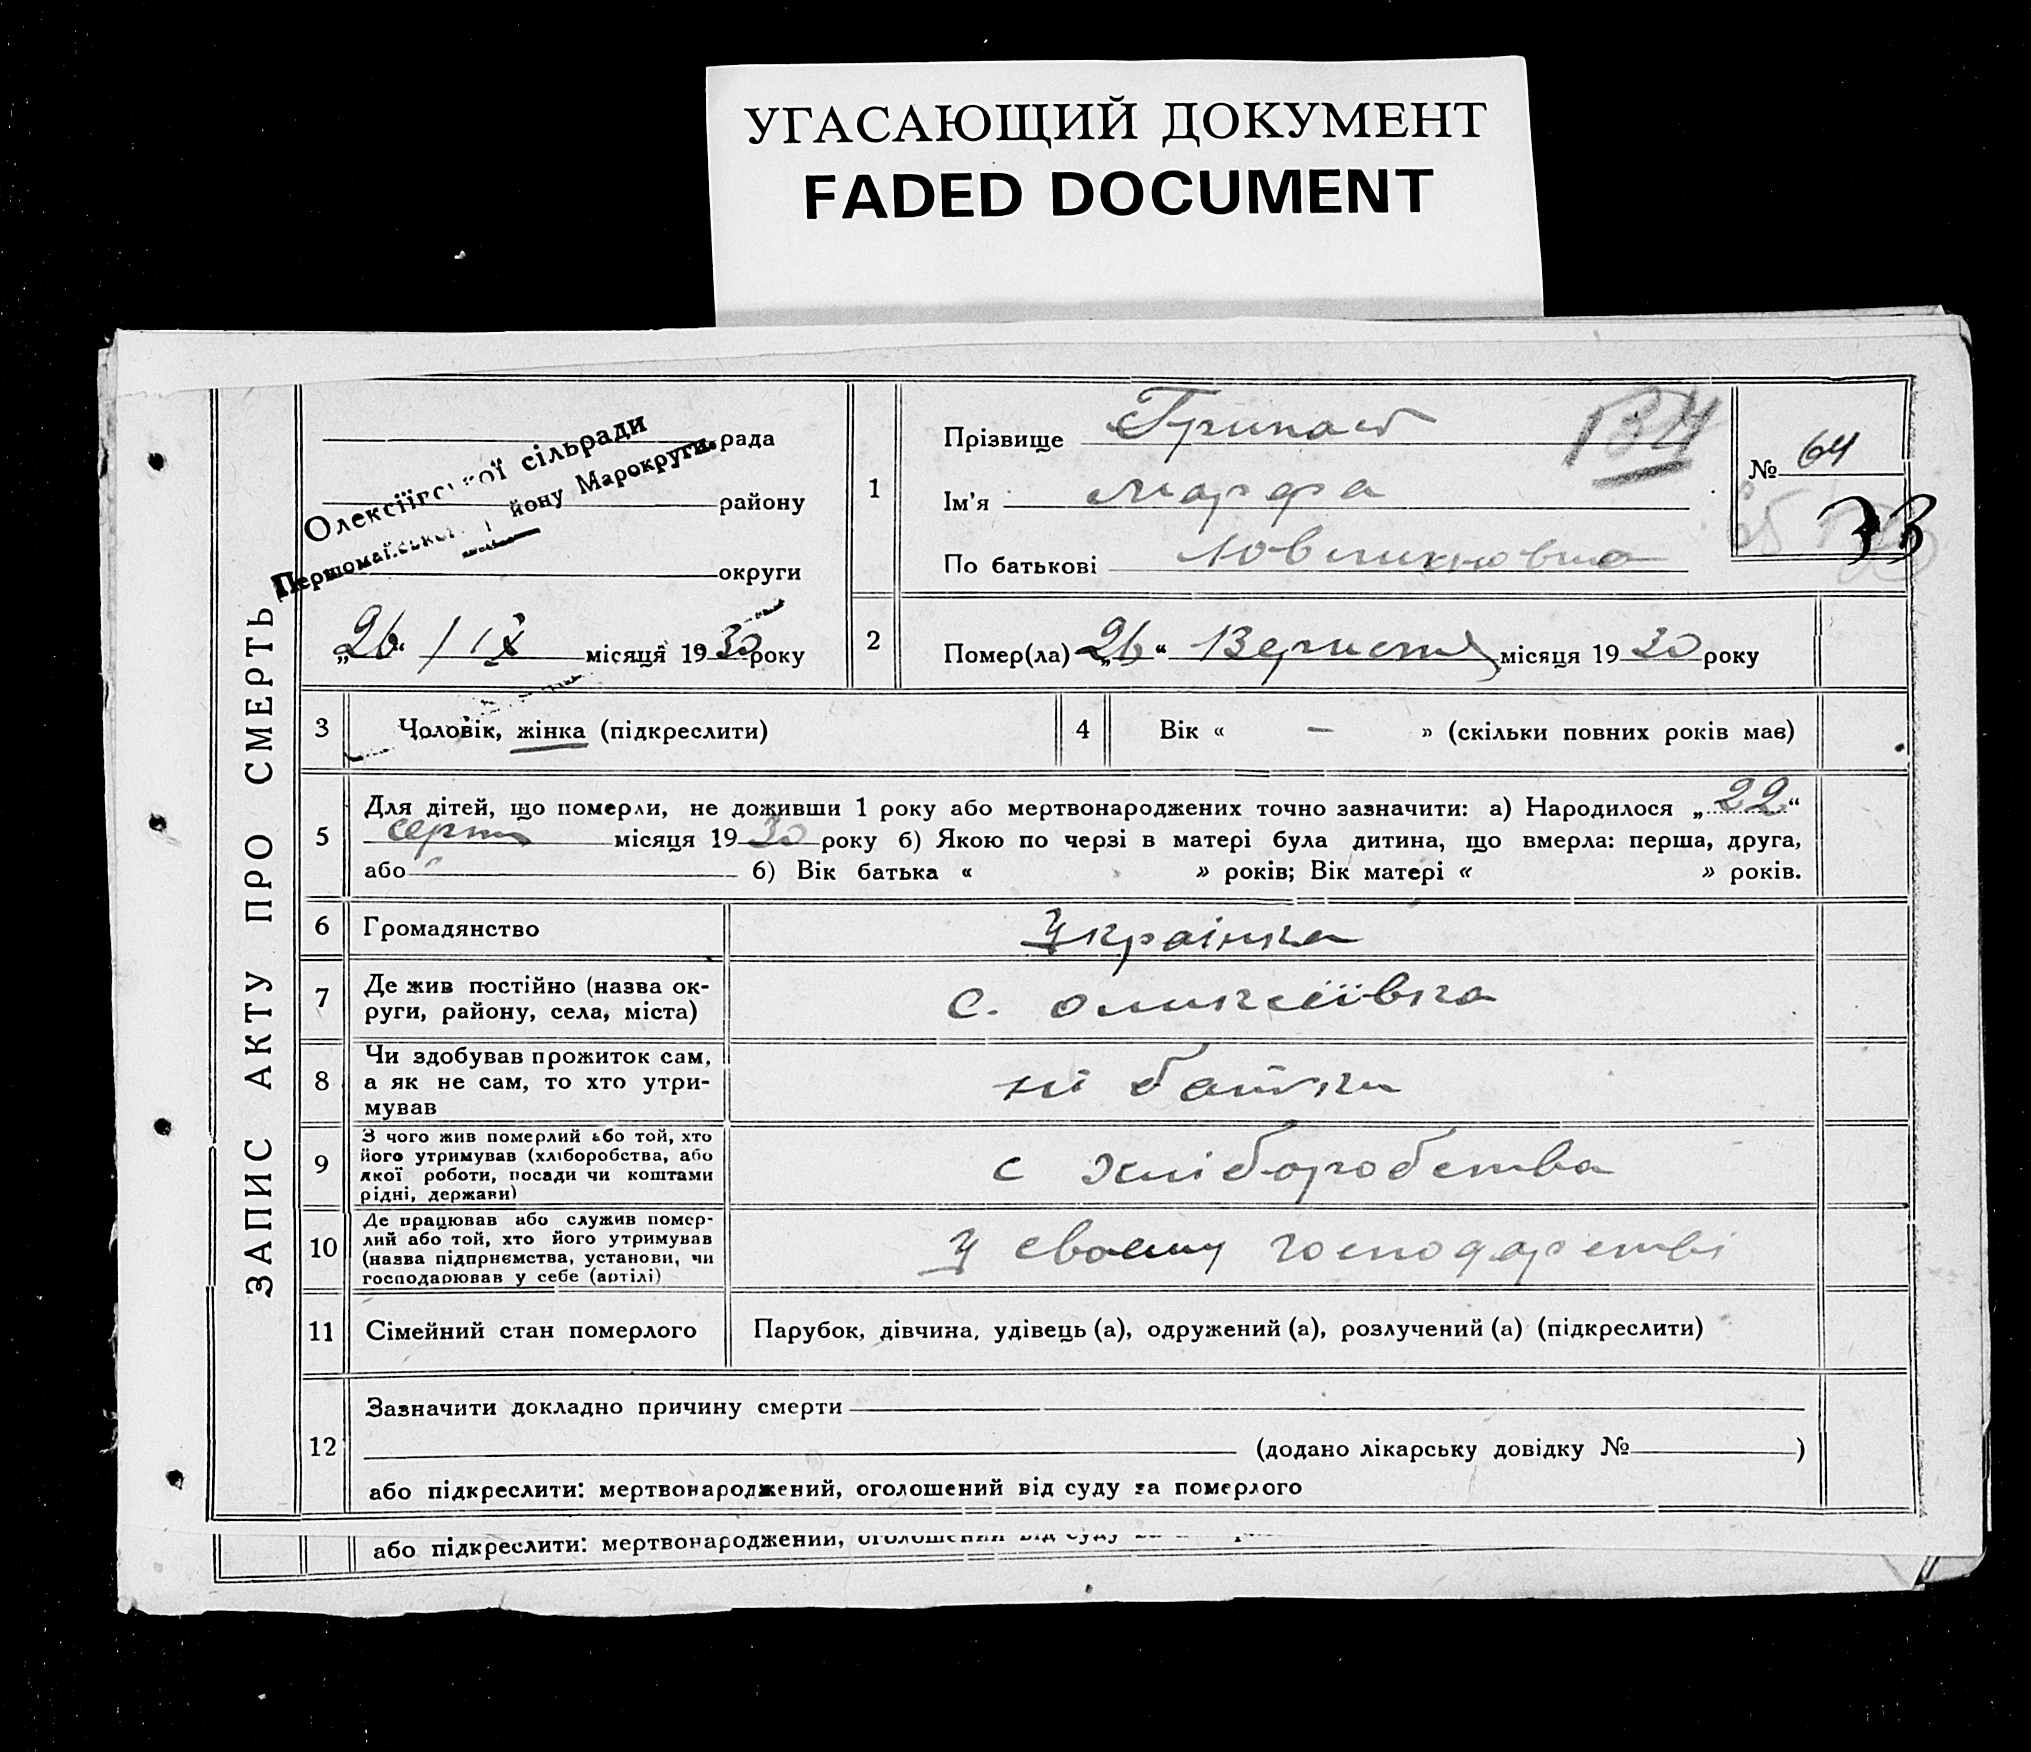 УГАСАЮЩИЙ ДОКУМЕНТ
FADED DOCUMENT
ЗАПИС АКТУ ПРО СМЕРТЬ
Олексіївської сільради
Першомайськ йону Марокруги.
рада
району
округи
„26“ / ІХ місяця 1930 року
1
Прізвище
Ім'я Марфа
По батькові
134
№ 64
33
2
Помер(ла) „26“ Вересня місяця 1930 року
3
Чоловік, жінка (підкреслити)
4
Вік « — » (скільки повних років має)
5
Для дітей, що померли, не доживши 1 року або мертвонароджених точно зазначити: а) Народилося „22“
серпня місяця 1930 року б) Якою по черзі в матері була дитина, що вмерла: перша, друга,
або б) Вік батька « » років; Вік матері « » років.
6
Громадянство
Українка
7
Де жив постійно (назва ок-
руги, району, села, міста)
с. Оликсіївка
8
Чи здобував прожиток сам,
а як не сам, то хто утри-
мував
ні батьки
9
З чого жив померлий або той, хто
його утримував (хліборобства, або
якої роботи, посади чи коштами
рідні, держави)
с хліборобства
10
Де працював або служив помер-
лий або той, хто його утримував
(назва підприємства, установи, чи
господарював у себе (артілі)
У своєму господарстві
11
Сімейний стан померлого
Парубок, дівчина, удівець (а), одружений (а), розлучений (а) (підкреслити)
12
Зазначити докладно причину смерти
(додано лікарську довідку № )
або підкреслити: мертвонароджений, оголошений від суду за померлого
або підкреслити: мертвонароджений, оголошений від суду за